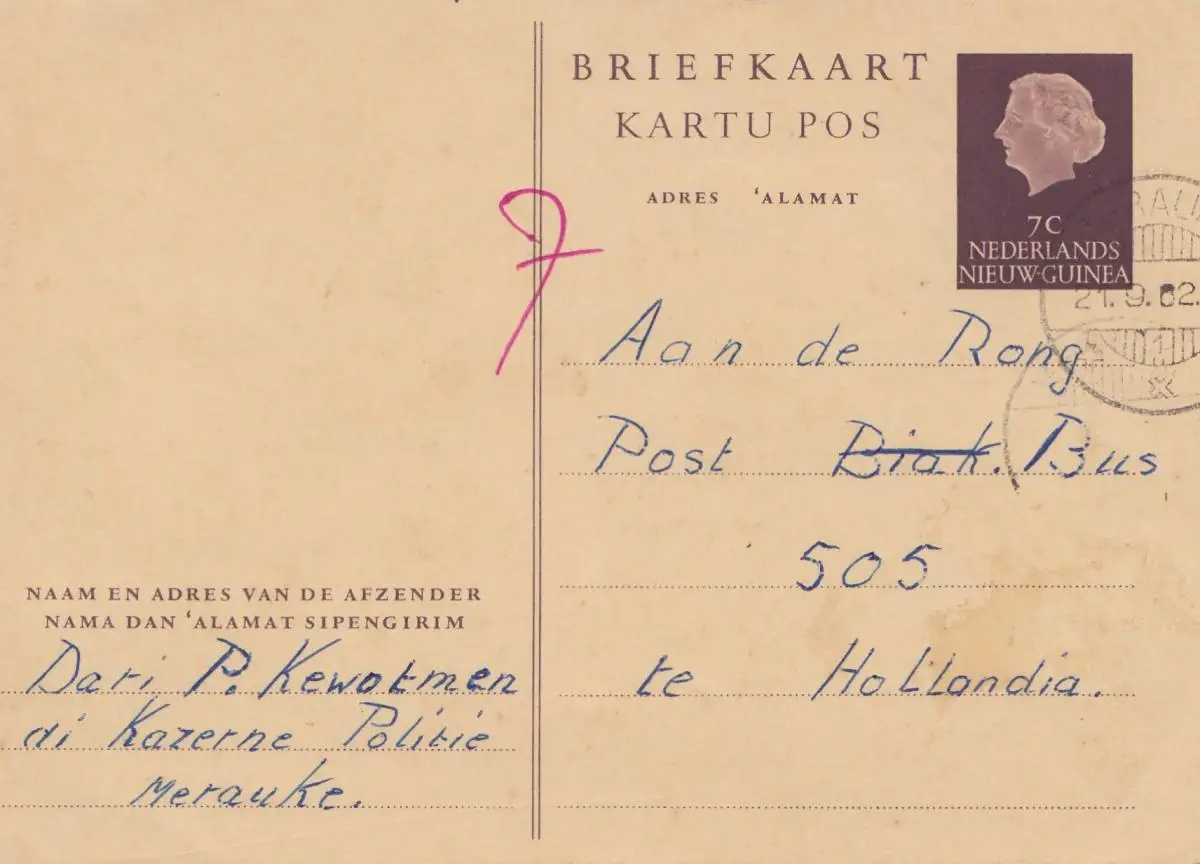 BRIEFKAART
KARTU POS
ADRES ‘ALAMAT
7C
NEDERLANDS
NIEUW-GUINEA
21.9.62.
1
7
Aan de Rong
Post Biak. Bus
505
te Hollandia.
NAAM EN ADRES VAN DE AFZENDER
NAMA DAN ‘ALAMAT SIPENGIRIM
Dari P. Kewotmen
di Kazerne Politie
Merauke.